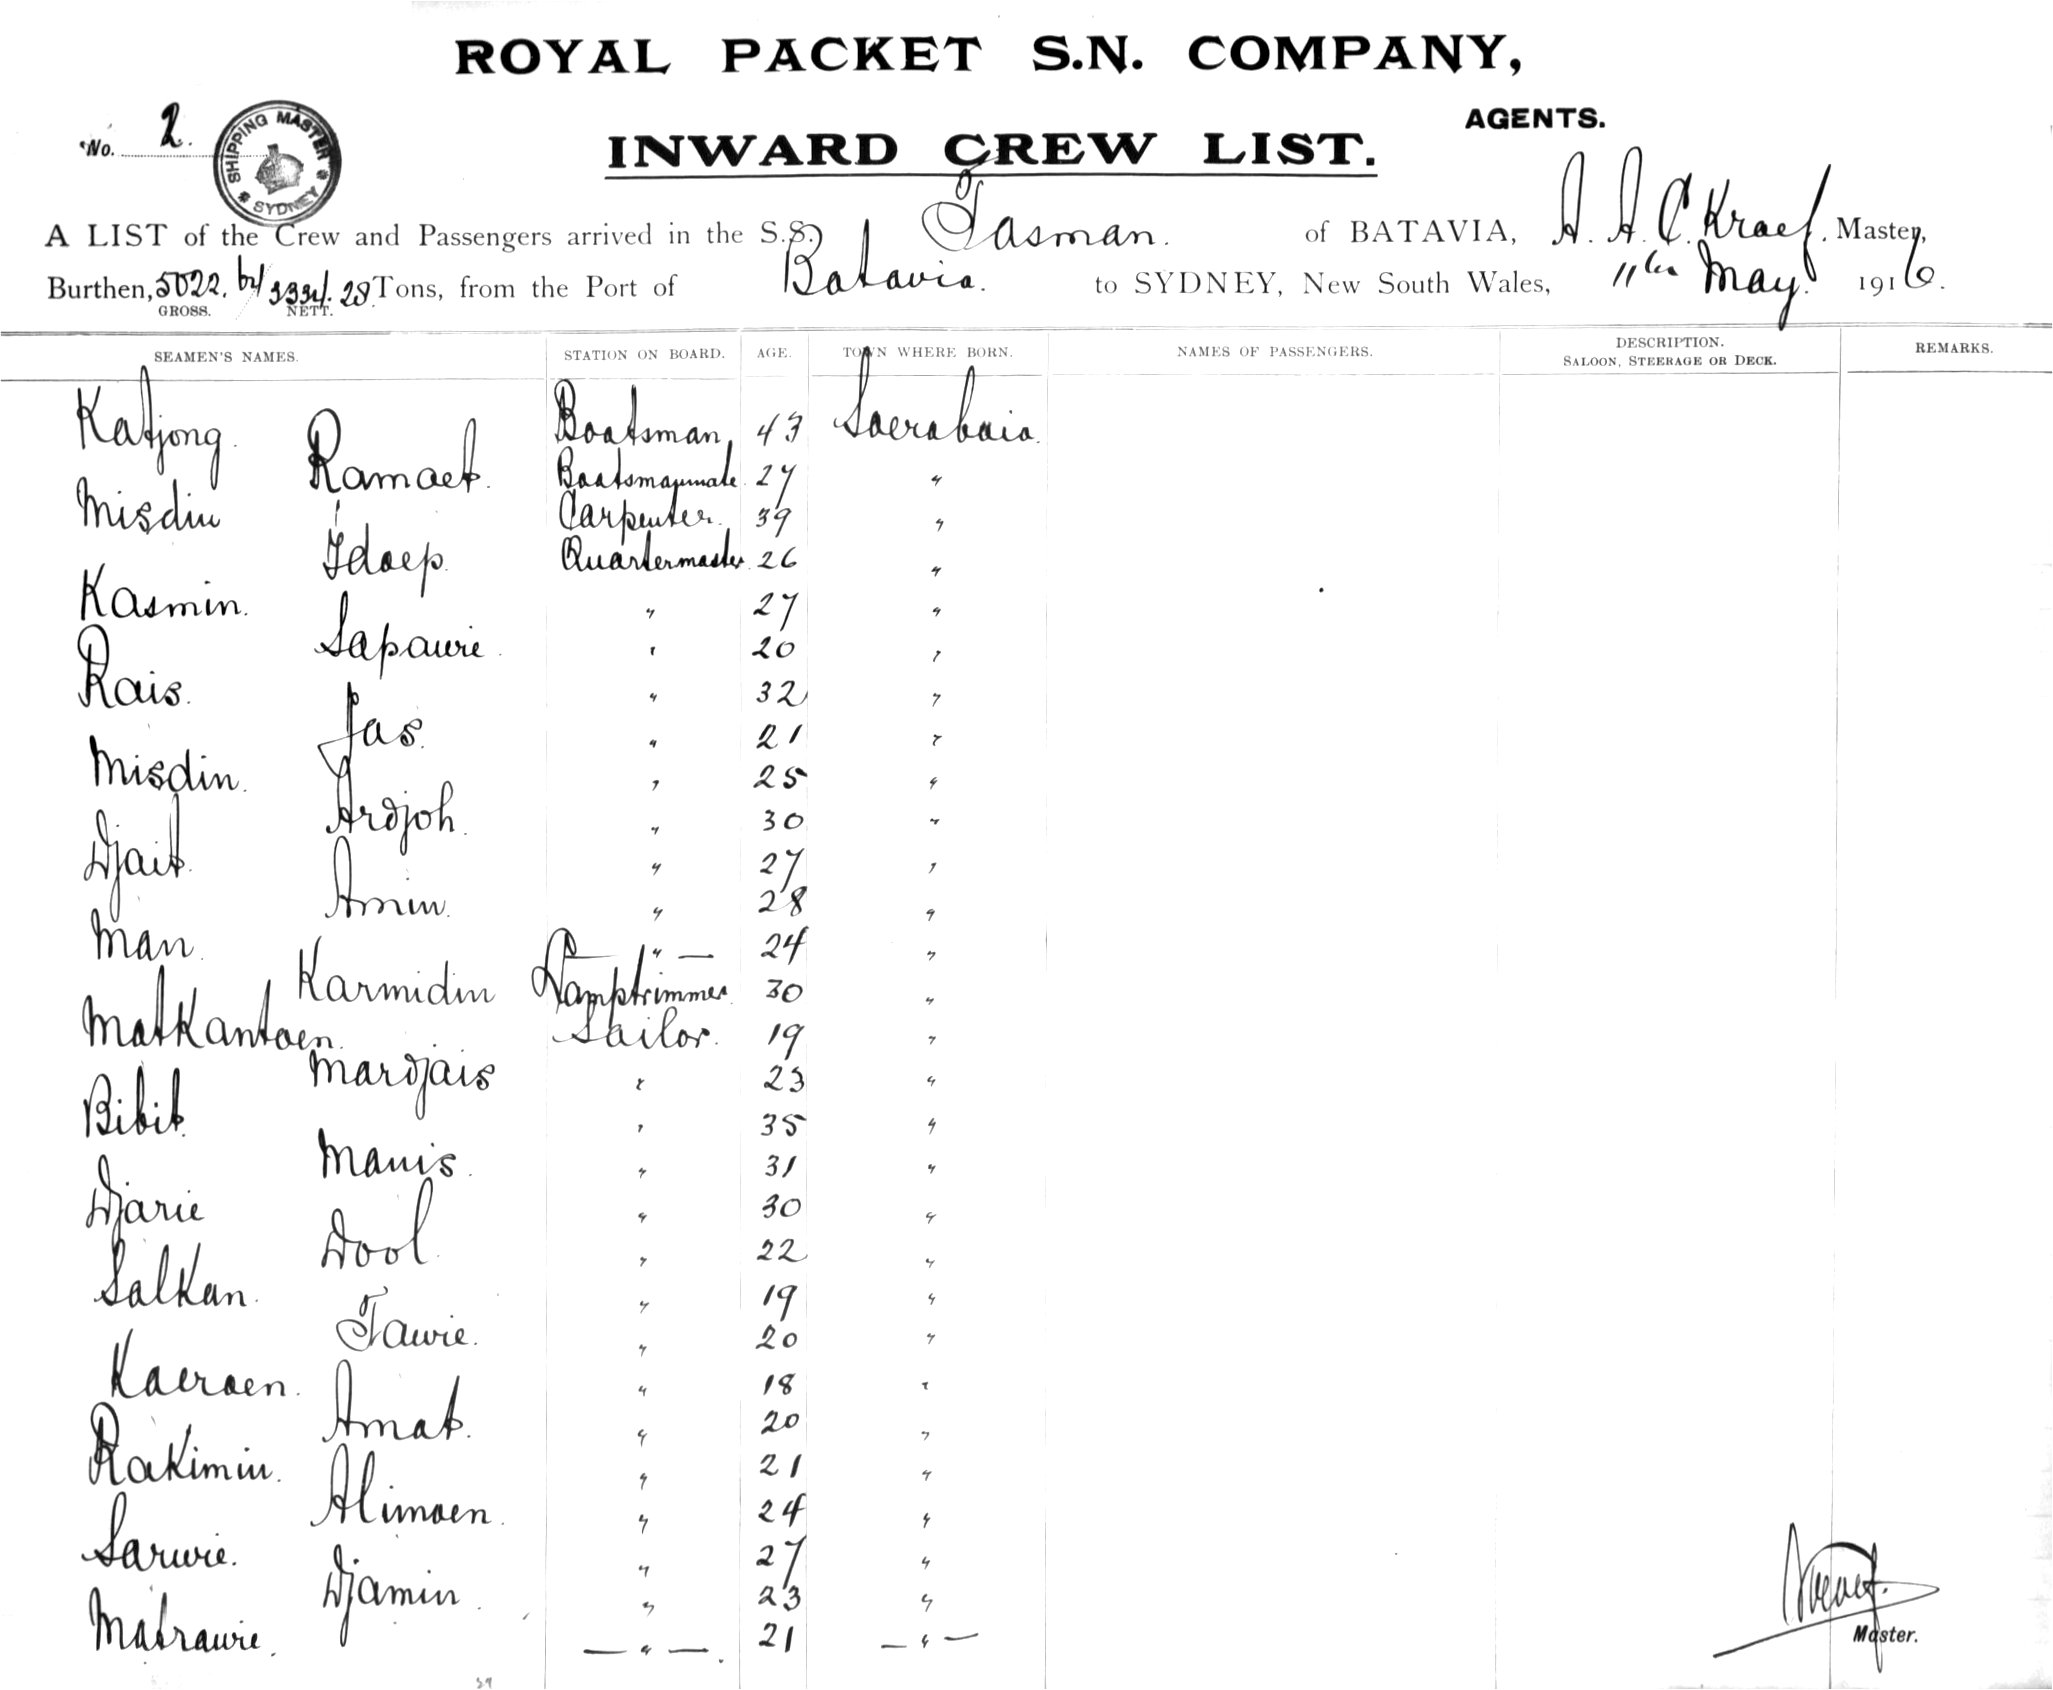 ROYAL PACKET S.N. COMPANY,
AGENTS.
No. 2.
SHIPPING MASTER SYDNEY
INWARD CREW LIST.
A LIST of the Crew and Passengers arrived in the S.S. Tasman. of BATAVIA, A. A. C. Kraef. Master,
Burthen, 5022. Tons, from the Port of Batavia. to SYDNEY, New South Wales, 11th May. 1916.
GROSS. NETT.
SEAMEN'S NAMES. STATION ON BOARD. AGE. TOWN WHERE BORN. NAMES OF PASSENGERS. DESCRIPTION. SALOON, STEERAGE OR DECK. REMARKS.
Katjong. Boatsman 43 Soerabaia.
Ramaet. Boatsmanmate. 27 "
Misdin Carpenter. 39 "
Idoep. Quartermaster 26 "
Kasmin. " 27 "
Sapawie. " 20 "
Rais. " 32 "
Jas. " 21 "
Misdin. " 25 "
Ardjoh. " 30 "
Djait. " 27 "
Amin. " 28 "
Man. " 24 "
Karmidin Lamptrimmer. 30 "
Matkantoen. Sailor. 19 "
Mardjais " 23 "
Bibit. " 35 "
Manis. " 31 "
Djarie " 30 "
Dool. " 22 "
Salkan. " 19 "
Tawie. " 20 "
Kaeroen. " 18 "
Amat. " 20 "
Rakimin. " 21 "
Alimoen. " 24 "
Sarwie. " 27 "
Djamin. " 23 "
Matrawie. " 21 "
Master.